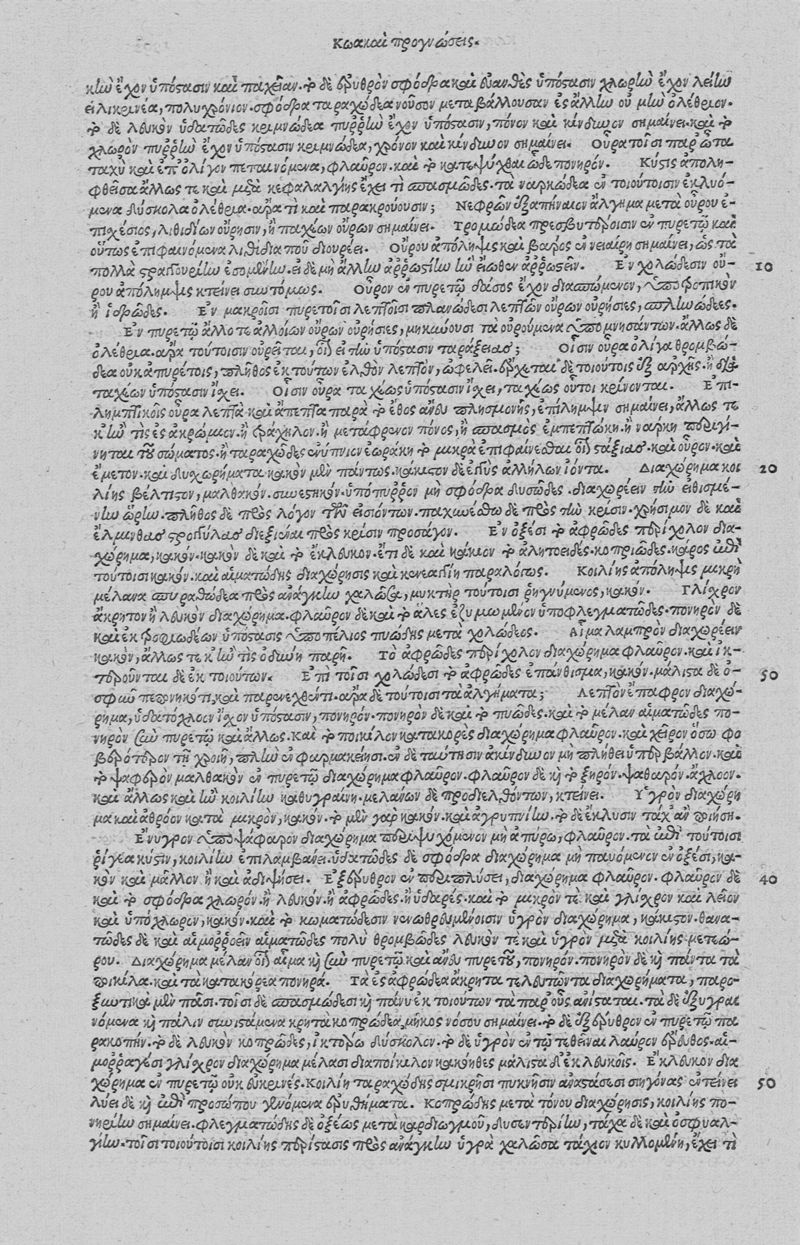 Κωακαὶ προγνώσεις.
κὴν ἔχον ὑπόστασιν καὶ παχεῖαν. τὸ δὲ ἐρυθρὸν σφόδρα καὶ εὐανθὲς ὑπόστασιν χλωρὴν ἔχον λείην
εἰλικρινέα, πολυχρόνιον. σφόδρα ταραχώδεα νοῦσον μεταβάλλουσαν ἐς ἄλλην οὐ μὴν ὀλέθριον.
τὸ δὲ λευκὸν ὑδατῶδες κριμνώδεα πυῤῥὴν ἔχον ὑπόστασιν, πόνον καὶ κίνδυνον σημαίνει. καὶ τὸ
χλωρὸν πυῤῥὴν ἔχον ὑπόστασιν κριμνώδεα, χρόνον καὶ κίνδυνον σημαίνει. Οὖρα τοῖσι παρ' ὦτα
ταχὺ καὶ ἐπ' ὀλίγον πεπαινόμενα, φλαῦρον. καὶ τὸ κατεψύχθαι ὧδε πονηρόν. Κύστις ἀπολη-
φθεῖσα ἄλλως τε καὶ μετὰ κεφαλαλγίης ἔχει τὶ σπασμῶδες. τὰ ναρκώδεα ἐν τοιούτοισιν ἐκλυό-
μενα δύσκολα ὀλέθρια. ἆρά τι καὶ παρακρούουσιν; Νεφρῶν ἐξαπιναῖον ἄλγημα μετὰ οὔρου ἐ-
πισχέσιος, λιθιδίων οὔρησιν, ἢ παχέων οὔρων σημαίνει. Τρομώδεα πρεσβυτέροισιν ἐν πυρετῷ καὶ
οὕτως ἐπιφαινόμενα λιθίδια που διουρέει. Οὔρου ἀπόληψις καὶ βάρος ἐν νειαίρῃ σημαίνει, ὡς τὰ
πολλὰ στραγγουρίην ἐσομένην. εἰ δὲ μὴ ἄλλην ἀῤῥωστίην ἣν εἴωθεν ἀῤῥωστεῖν. Ἐν χολώδεσιν οὔ- 10
ρου ἀπόληψις κτείνει συντόμως. Οὖρον ἐν πυρετῷ δάσος ἔχον διασπώμενον, ὑποστροφικὸν
ἢ ἱδρῶδες. Ἐν μακροῖσι πυρετοῖσι λεπτοῖσι πλανώδεσι λεπτῶν οὔρων οὐρήσιες, σπληνώδεες.
Ἐν πυρετῷ ἄλλοτε ἀλλοίων οὔρων οὐρήσιες, μηκύνουσι τὰ οὐρούμενα ὑπομνησάντων. ἄλλως δὲ
ὀλέθρια. ἆρα τούτοισιν οὐρεῖται, οἷον εἰ τὴν ὑπόστασιν ταράξειας; Οἷσιν οὖρα ὀλίγα θρομβώ-
δεα οὐκ ἀπύρετοις, πλῆθος ἐκ τούτων ἐλθὸν λεπτὸν, ὠφελεῖ. ἔρχεται δὲ τοιούτοις ἐξ ἀρχῆς. ἢ διὰ
ταχέων ὑπόστασιν ἴσχει. Οἷσιν οὖρα ταχέως ὑπόστασιν ἴσχει, ταχέως οὗτοι κρίνονται. Ἐπι-
λημπτικοῖς οὖρα λεπτὰ καὶ ἄπεπτα παρὰ τὸ ἔθος ἄνευ πλησμονῆς, ἐπίληψιν σημαίνει, ἄλλως τε
κἢν τις ἐς ἀκρώμιον. ἢ τράχηλον. ἢ μετάφρενον πόνος, ἢ σπασμὸς ἐμπεπτώκῃ. ἢ νάρκη περιγί-
νηται τοῦ σώματος, ἢ ταραχῶδες ἐνύπνιον ἑωράκῃ τὸ μικρὰ ἐπιφαίνεσθαι οἷον στάξιας. καὶ οὖρον. καὶ
ἔμετον. καὶ διαχωρήματα. κακὸν μὲν πάντως. κάκιστον δὲ ἐγγὺς ἀλλήλων ἰόντα. Διαχώρημα κοι 20
λίης βέλτιστον, μαλθακὸν. συνεστηκὸν. ὑπόπυῤῥον μὴ σφόδρα δυσῶδες. διαχωρέειν τὴν εἰθισμέ-
νην ὥρην. πλῆθος δὲ πρὸς λόγον τῶν εἰσιόντων. παχυνέσθω δὲ πρὸς τὴν κρίσιν. χρήσιμον δὲ καὶ
ἕλμινθας στρογγύλας διεξιέναι πρὸς κρίσιν προσάγον. Ἐν ὀξέσι τὸ ἀφρῶδες περίχολον δια-
χώρημα, κακόν. κακὸν δὲ καὶ τὸ ἔκλευκον. ἔτι δὲ καὶ κάκιον τὸ ἀλητοειδὲς. κοπριῶδες. κάρος ἐπὶ
τούτοισι κακόν. καὶ αἱματώδης διαχώρησις καὶ κενεαγγείη παραλόγως. Κοιλίης ἀπόληψις μικρὴ
μέλανα σπυραθώδεα πρὸς ἀνάγκην χαλῶσι, μυκτὴρ τούτοισι ῥηγνύμενος, κακόν. Γλίσχρον
ἄκρητον ἢ λευκὸν διαχώρημα. φλαῦρον δὲ καὶ τὸ ἅλες ἐζυμωμένον ὑποφλεγματῶδες. πονηρὸν δὲ
καὶ ἐκ στροφωδέων ὑπόστασις ὑποπέλιος πυώδης μετὰ χολώδεος. Αἷμα λαμπρὸν διαχωρέειν
κακόν, ἄλλως τε κἢν τις ὀδύνη παρῇ. Τὸ ἀφρῶδες περίχολον διαχώρημα φλαῦρον. καὶ ἰκ-
τεροῦνται δὲ ἐκ τοιούτων. Ἐπὶ τοῖσι χολώδεσι τὸ ἀφρῶδες ἐπάνθισμα, κακόν. μάλιστα δὲ ὀ- 30
σφὺν πεπονηκότι, καὶ παρενεχθέντι. ἆρα δὲ τούτοισι τὰ ἀλγήματα; Λεπτὸν ἔπαφρον διαχώ-
ρημα, ὑδατόχλοον ἴσχον ὑπόστασιν, πονηρόν. πονηρὸν δὲ καὶ τὸ πυῶδες. καὶ τὸ μέλαν αἱματῶδες πο-
νηρὸν ξὺν πυρετῷ καὶ ἄλλως. καὶ τὸ ποικίλον κατακορὲς διαχώρημα φλαῦρον. καὶ χεῖρον ὅσῳ φο
βερότερον τῇ χροιῇ, πλὴν ἐν φαρμακείῃσι. ἐν δὲ ταύτῃσιν ἀκίνδυνον μὴ πλήθει ὑπερβάλλον. καὶ
τὸ ψαφαρὸν μαλθακὸν ἐν πυρετῷ διαχώρημα φλαῦρον. φλαῦρον δὲ καὶ τὸ ξηρὸν. ψαθυρὸν. ἄχλοον.
καὶ ἄλλως καὶ ἢν κοιλίην καθυγραίνῃ. μελάνων δὲ προδιελθόντων, κτείνει. Ὑγρὸν διαχώρη
μα καὶ ἀθρόον κατὰ μικρὸν, κακόν. τὸ μὲν γὰρ κακὸν. καὶ ἀγρυπνίην. τὸ δὲ ἔκλυσιν τάχ' ἂν ποιήσῃ.
Ἔνυγρον ὑποψάφαρον διαχώρημα περιψυχόμενον μὴ ἀπύρῳ, φλαῦρον. τὰ ἐπὶ τούτοισι
ῥίγεα κύστιν, κοιλίην ἐπιλαμβάνει. ὑδατῶδες δὲ σφόδρα διαχώρημα μὴ παυόμενον ἐν ὀξέσι, κα-
κὸν καὶ μᾶλλον. ἢν καὶ ἀδιψήσει. Ἐξέρυθρον ἐν περιπλύσει, διαχώρημα φλαῦρον. φλαῦρον δὲ 40
καὶ τὸ σφόδρα χλωρὸν. ἢ λευκόν. ἢ ἀφρῶδες. ἢ ὑδαρές. καὶ τὸ μικρόν τε καὶ γλίσχρον καὶ λεῖον
καὶ ὑπόχλωρον, κακόν. καὶ τὸ κωματώδεσιν νενωθρευμένοισιν ὑγρὸν διαχώρημα, κάκιστον. θανα-
τῶδες δὲ καὶ αἱμοῤῥοεῖν αἱματῶδες πολὺ θρομβῶδες λευκόν τε καὶ ὑγρὸν μετὰ κοιλίης μετεώ-
ρου. Διαχώρημα μέλαν οἷον αἷμα καὶ ξὺν πυρετῷ καὶ ἄνευ πυρετοῦ, πονηρόν. πονηρὸν δὲ καὶ πάντα τὰ
ποικίλα. καὶ τὰ κατακόρεα πονηρά. Τὰ ἐς ἀφρώδεα ἄκρητα τελευτῶντα διαχωρήματα, παρο-
ξυντικὰ μὲν πᾶσι. τοῖσι δὲ σπασμώδεσι καὶ πάνυ ἐκ τοιούτων τὰ παρ' οὖς ἀνίσταται. τὰ δὲ ἐξυγραι
νόμενα καὶ πάλιν συνιστάμενα ἄκρητα κοπρώδεα, μῆκος νόσου σημαίνει. τὸ δὲ ἐξέρυθρον ἐν πυρετῷ πα
ρακοπήν. τὸ δὲ λευκὸν κοπρῶδες, ἰκτέρῳ δύσκολον. τὸ δὲ ὑγρὸν ἐν τῷ τεθῆναι λαῦρον ἔρευθος. αἱ-
μοῤῥαγέσι γλίσχρον διαχώρημα μέλασι διαποίκιλον κακόηθες μάλιστα δ' ἐκλεύκοις. Ἔκλευκον δια
χώρημα ἐν πυρετῷ οὐκ εὐκρινές. Κοιλίη ταραχώδης σμικρῇσι πυκνῇσιν ἀναστάσεσι σιηγόνας ἐντείνει 50
λύει δὲ καὶ ἐπὶ προσώπου γενόμενα ἐρυθήματα. Κοπρώδης μετὰ τόνου διαχώρησις, κοιλίης πο-
νηρίην σημαίνει. φλεγματώδης δὲ ὀξέως μετὰ καρδιωγμοῦ, δυσεντερίην, τάχα δὲ καὶ ὀσφυαλ-
γίην. τοῖσι τοιούτοισι κοιλίης περίστασις πρὸς ἀνάγκην ὑγρὰ χαλῶσα τάχιον κυλλομένη, ἔχει τὶ